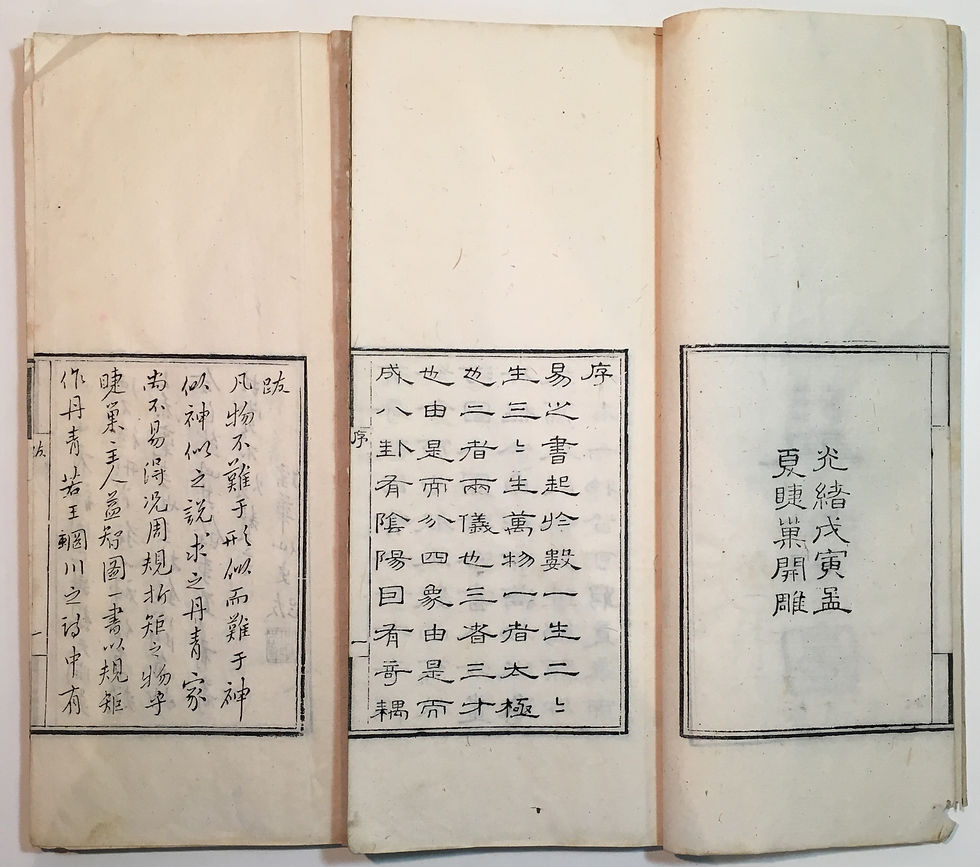 光緒戊寅孟
夏睫巢開雕
序
易之書起於數一生二〻
生三〻生萬物一者太極
也二者兩儀也三者三才
也由是而分四象由是而
成八卦有陰陽囙有奇耦
序 一
跋
凡物不難于形似而難于神
似神似之說求之丹青家
尚不易得況周規折矩之物乎
睫巢主人益智圖一書以規矩
作丹青若王輞川之詩中有
一